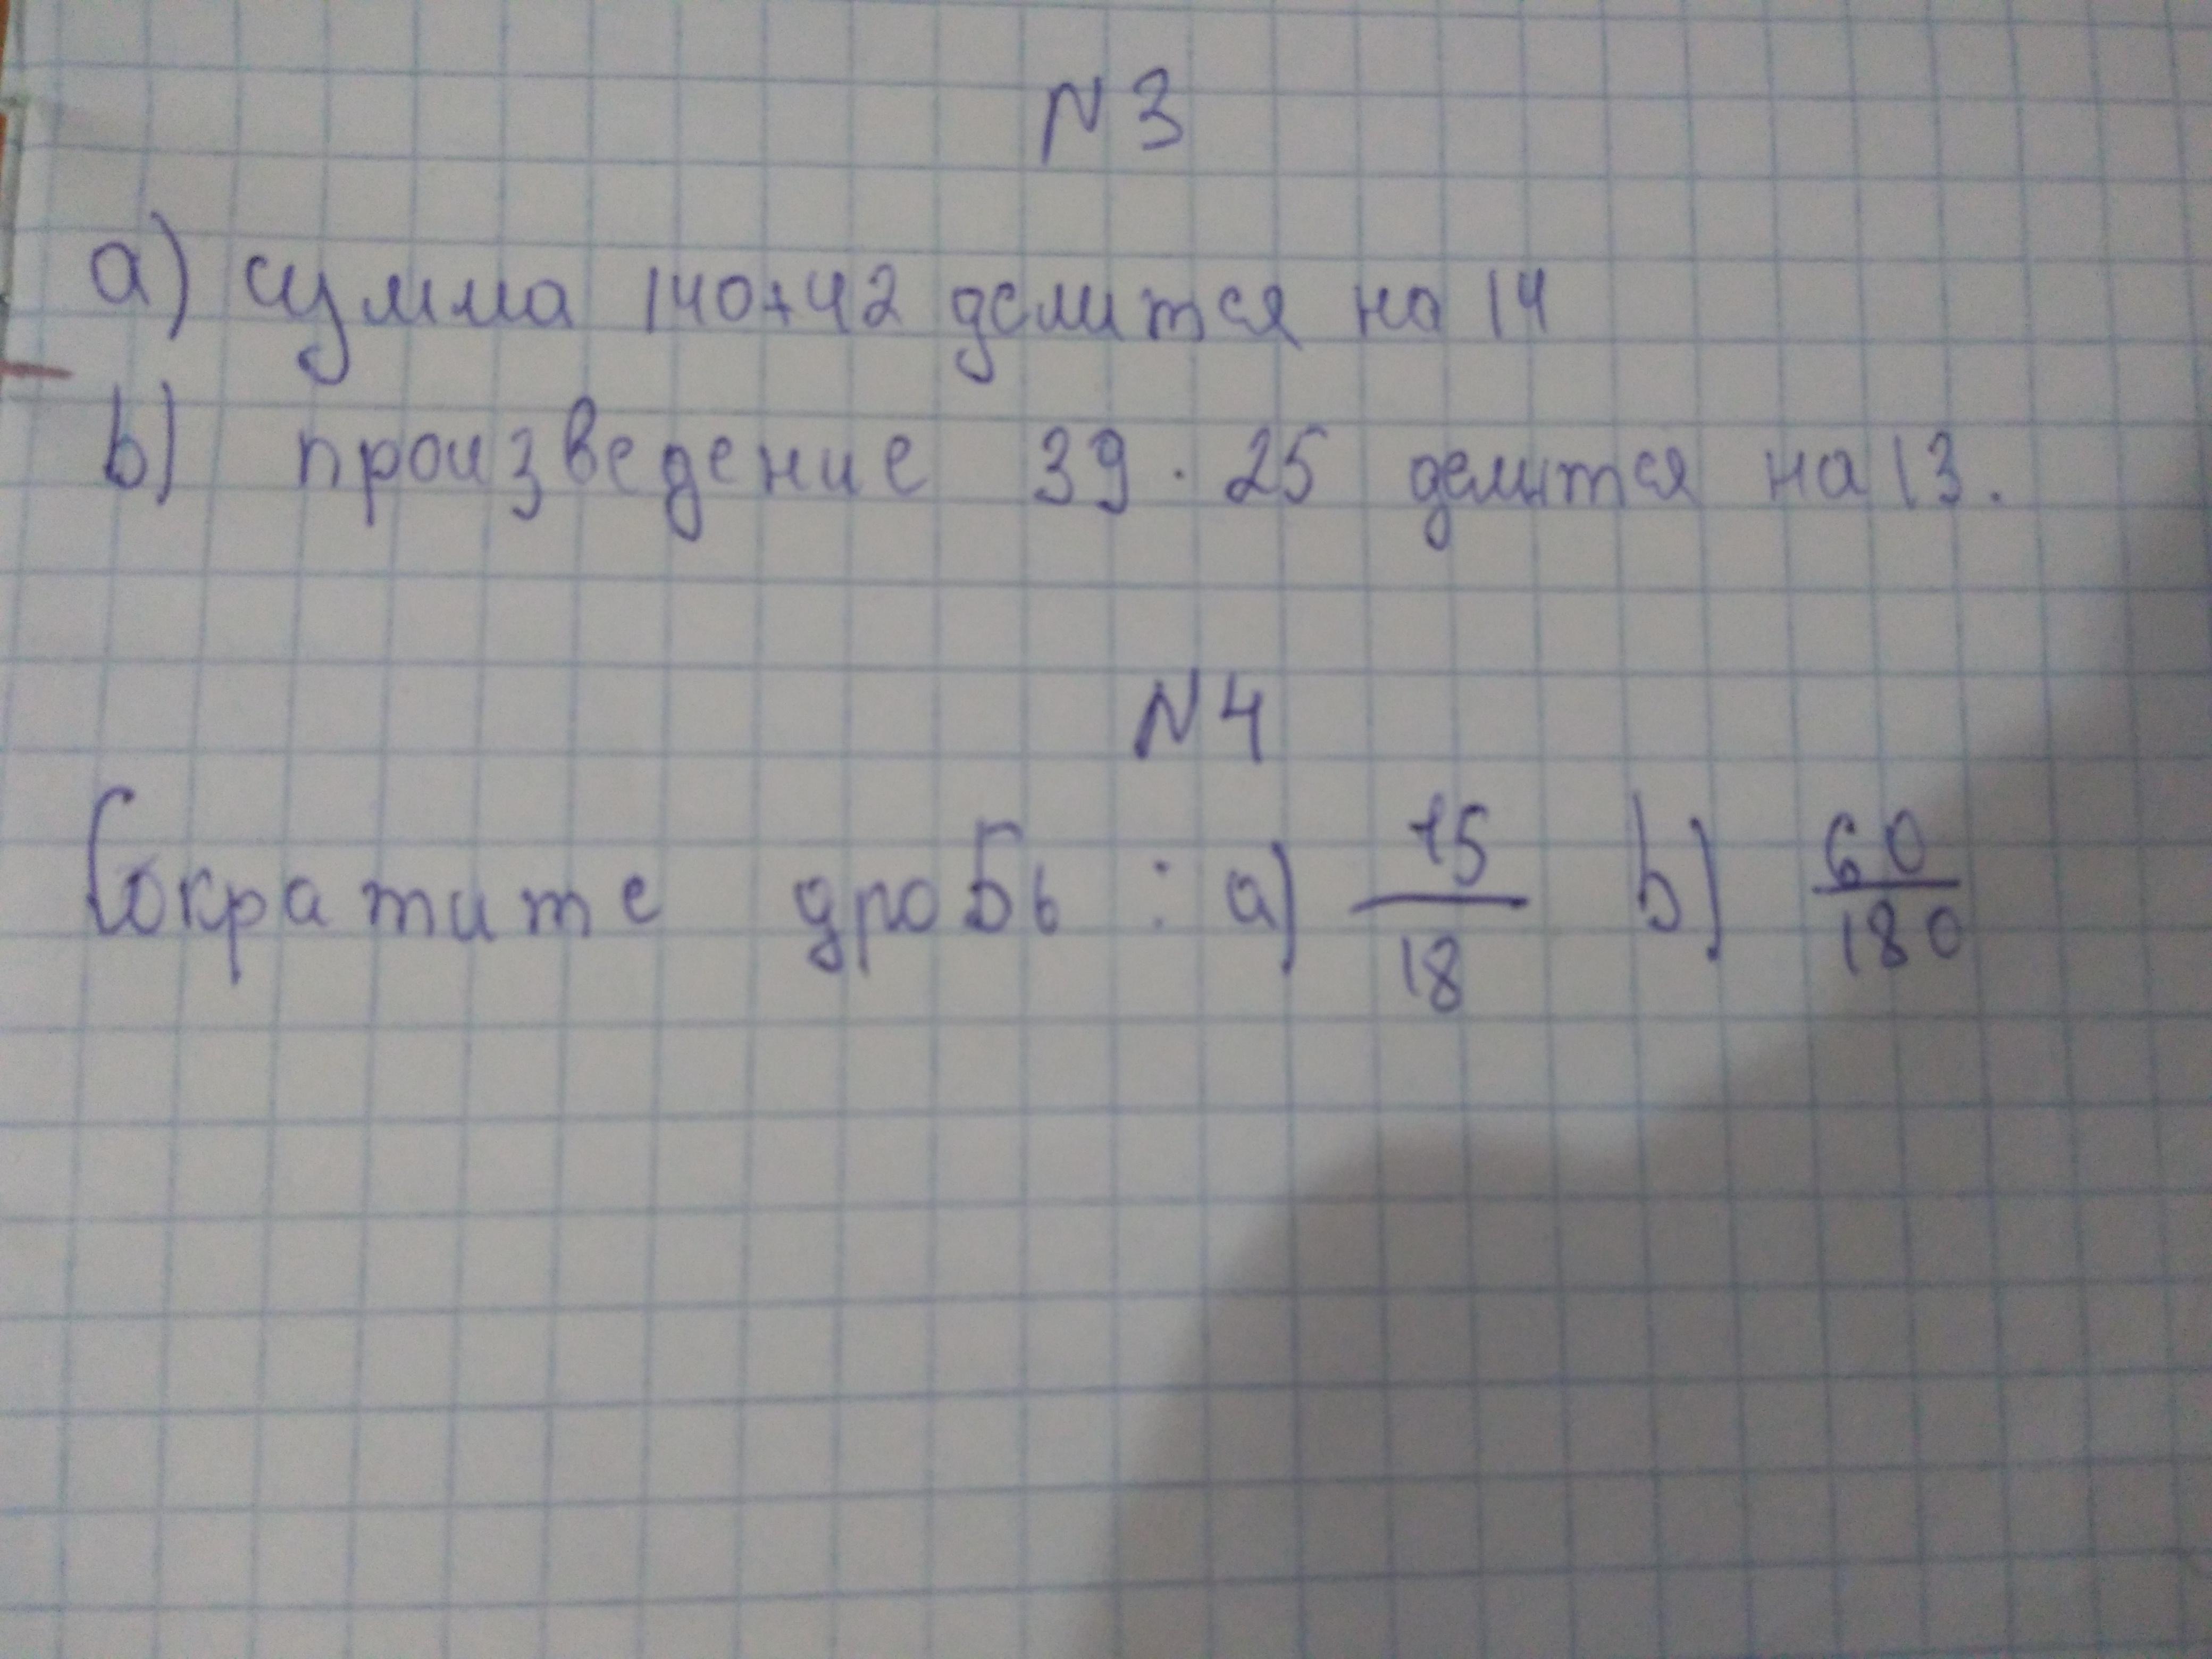 N 3
a) сумма 140+42 делится на 14
b) произведение 39 · 25 делится на 13.
N 4
Сократите дробь : a) 15/18 b) 60/180